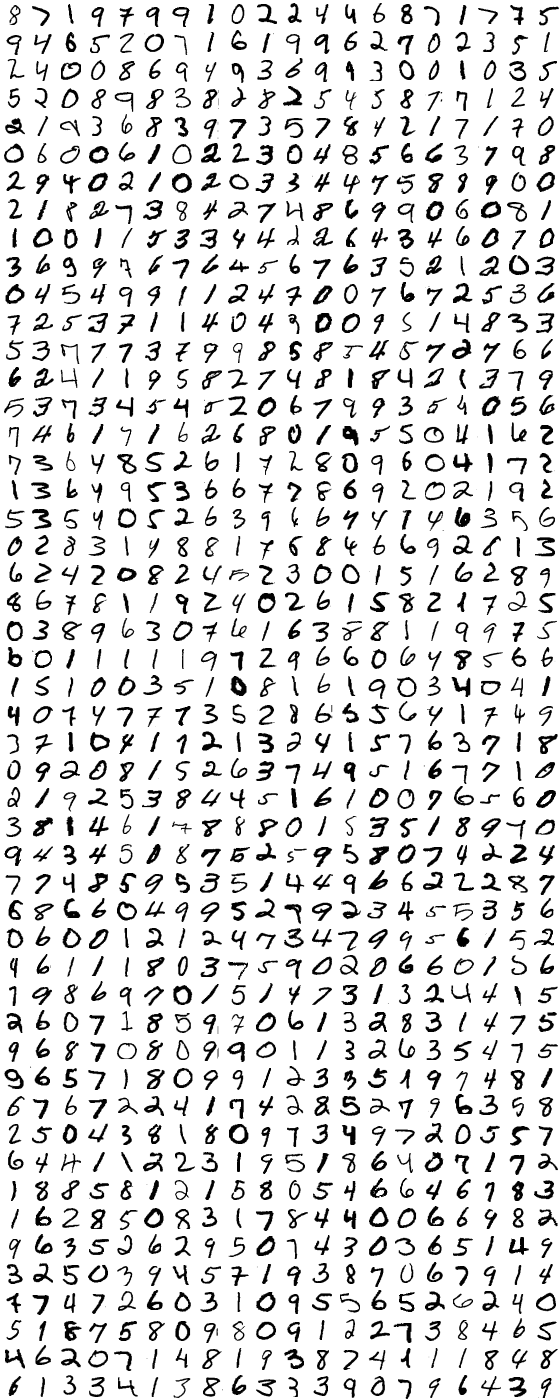 8 7 1 9 7 9 9 1 0 2 2 4 4 6 8 7 1 7 7 5
9 4 6 5 2 0 7 1 6 1 9 9 6 2 7 0 2 3 5 1
2 4 0 0 8 6 9 4 9 3 6 9 9 3 0 0 1 0 3 5
5 2 0 8 9 8 3 8 2 8 2 5 4 5 8 7 7 1 2 4
2 1 2 3 6 8 3 9 7 3 5 7 8 4 2 1 7 1 7 0
0 6 0 0 6 1 0 2 2 3 0 4 8 5 6 6 3 7 9 8
2 9 4 0 2 1 0 2 0 3 3 4 4 7 5 8 8 9 0 0
2 1 8 2 7 3 8 4 2 7 4 8 6 9 9 0 6 0 8 1
1 0 0 1 1 5 3 3 4 4 2 2 6 4 3 4 6 0 7 0
3 6 9 9 7 6 7 6 4 5 6 7 6 3 5 2 1 2 0 3
0 4 5 4 9 9 1 1 2 4 7 0 0 7 6 7 2 5 3 6
7 2 5 3 7 1 1 4 0 4 9 0 0 9 5 1 4 8 3 3
5 3 7 7 7 3 7 9 9 8 5 8 5 4 5 7 2 7 6 6
6 2 4 1 1 9 5 8 2 7 4 8 1 8 4 2 1 3 7 9
5 3 7 3 4 5 4 5 2 0 6 7 9 9 3 5 4 0 5 6
7 4 6 1 7 1 6 2 6 8 0 1 9 5 5 0 4 1 6 2
7 3 6 4 8 5 2 6 1 7 2 8 0 9 6 0 4 1 7 2
1 3 6 4 9 5 3 6 6 7 7 8 6 9 2 0 2 1 9 2
5 3 5 4 0 5 2 6 3 9 6 6 7 4 7 4 6 3 5 6
0 2 8 3 1 4 8 8 1 7 6 8 4 6 6 9 2 8 1 3
6 2 4 2 0 8 2 4 5 2 3 0 0 1 5 1 6 2 8 9
8 6 7 8 1 1 9 2 4 0 2 6 1 5 8 2 1 7 2 5
0 3 8 9 6 3 0 7 6 1 6 3 8 8 1 1 9 9 7 5
6 0 1 1 1 1 1 9 7 2 9 6 6 0 6 4 8 5 6 6
1 5 1 0 0 3 5 1 0 8 1 6 1 9 0 3 4 0 4 1
4 0 7 4 7 7 7 3 5 2 8 6 5 5 6 4 1 7 4 9
3 7 1 0 4 1 1 2 1 3 2 4 1 5 7 6 3 7 1 8
0 9 2 0 8 1 5 2 6 3 7 4 9 5 1 6 7 7 1 0
2 1 9 2 5 3 8 4 4 5 1 6 1 0 0 7 6 5 6 0
3 8 1 4 6 1 7 8 8 8 0 1 5 3 5 1 8 9 7 0
9 4 3 4 5 0 8 7 6 2 5 9 5 8 0 7 4 2 2 4
7 7 4 8 5 9 5 3 5 1 4 4 9 6 6 2 2 2 8 7
6 8 6 6 0 4 9 9 5 2 7 9 2 3 4 5 5 3 5 6
0 6 0 0 1 2 1 2 4 7 3 4 7 9 9 5 6 1 5 2
4 6 1 1 1 8 0 3 7 5 9 0 2 0 6 6 0 1 5 6
7 9 8 6 9 7 0 1 5 1 4 7 3 1 3 2 4 4 1 5
2 6 0 7 1 8 5 9 7 0 6 1 3 2 8 3 1 4 7 5
9 6 8 7 0 8 0 9 9 0 1 1 3 2 6 3 5 4 7 5
9 6 5 7 1 8 0 9 9 1 2 3 3 5 1 9 7 4 8 1
6 7 6 7 2 2 4 1 7 4 2 8 5 2 7 9 6 3 5 8
2 5 0 4 3 8 1 8 0 9 7 3 4 9 7 2 0 5 5 7
6 4 4 1 1 2 2 3 1 9 5 1 8 6 4 0 7 1 7 2
1 8 8 5 8 1 2 1 5 8 0 5 4 6 6 4 6 7 8 3
1 6 2 8 5 0 8 3 1 7 8 4 4 0 0 6 6 9 8 2
9 6 3 5 2 6 2 9 5 0 7 4 3 0 3 6 5 1 4 9
3 2 5 0 3 9 4 5 7 1 9 3 8 7 0 6 7 9 1 4
7 7 4 7 2 6 0 3 1 0 9 5 5 6 5 2 6 2 4 0
5 1 8 7 5 8 0 9 8 0 9 1 2 2 7 3 8 4 6 5
4 6 2 0 7 1 4 8 1 9 3 8 7 4 1 1 1 8 4 8
6 1 3 3 4 1 3 8 6 3 3 3 9 0 7 9 6 4 3 9